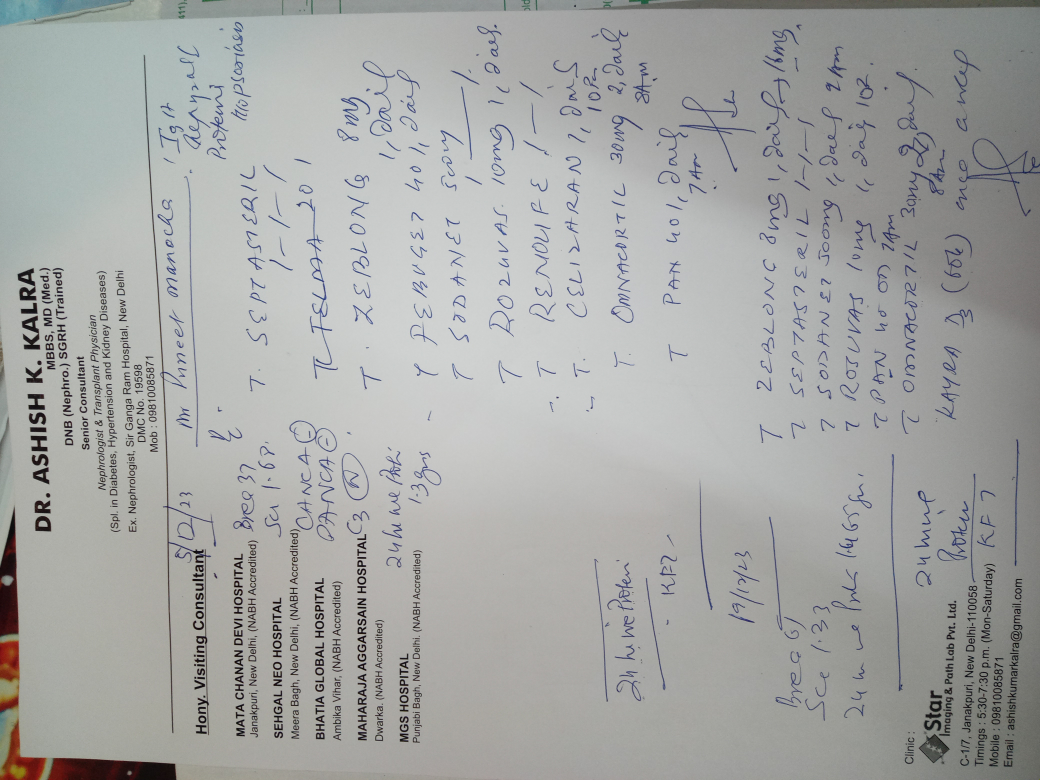 DR. ASHISH K. KALRA
MBBS, MD (Med.)
DNB (Nephro.) SGRH (Trained)
Senior Consultant
Nephrologist & Transplant Physician
(Spl. in Diabetes, Hypertension and Kidney Diseases)
Ex. Nephrologist, Sir Ganga Ram Hospital, New Delhi
DMC No. 19598
Mob : 09810085871
5/12/23
Mr Puneet Manocha
IgA
Hony. Visiting Consultant
MATA CHANAN DEVI HOSPITAL
Janakpuri, New Delhi, (NABH Accredited)
SEHGAL NEO HOSPITAL
Meera Bagh, New Delhi, (NABH Accredited)
BHATIA GLOBAL HOSPITAL
Ambika Vihar, (NABH Accredited)
MAHARAJA AGGARSAIN HOSPITAL
Dwarka. (NABH Accredited)
MGS HOSPITAL
Punjabi Bagh, New Delhi, (NABH Accredited)
Urea 37
1.68
CANCA -
PANCA -
C3 N
1.3 gms
T. SEPTASTERIL
1-1-1
T TELDA 20 1
T. ZEBLONG 8mg
1, daily
T FEBUGET 40 1, daily
T SODANET 500mg
1 — 1
T ROZUVAS 10mg 1, daily
T RENOLIFE 1 — 1
T. CELIZARAN 1, daily
10 Pm
T. OMNACORTIL 30mg 2, daily
8 Am
T PAN 40 1, daily
7 Am
KFT
19/12/23
Urea 61
1.33
T ZEBLONG 8mg 1, daily → 16mg
T SEPTASTERIL 1-1-1
T SODANET 500mg 1, daily 9 Am
T ROSUVAS 10mg 1, daily 10P
T PAN 40 OD 7 Am
T OMNACORTIL 30mg 2, daily
8 Am
KAYRA D3 (60k) once a week
24 urine
Protein
KFT
Clinic :
Star
Imaging & Path Lab Pvt. Ltd.
C-1/7, Janakpuri, New Delhi-110058
Timings : 5:30-7:30 p.m. (Mon-Saturday)
Mobile : 09810085871
Email : ashishkumarkalra@gmail.com